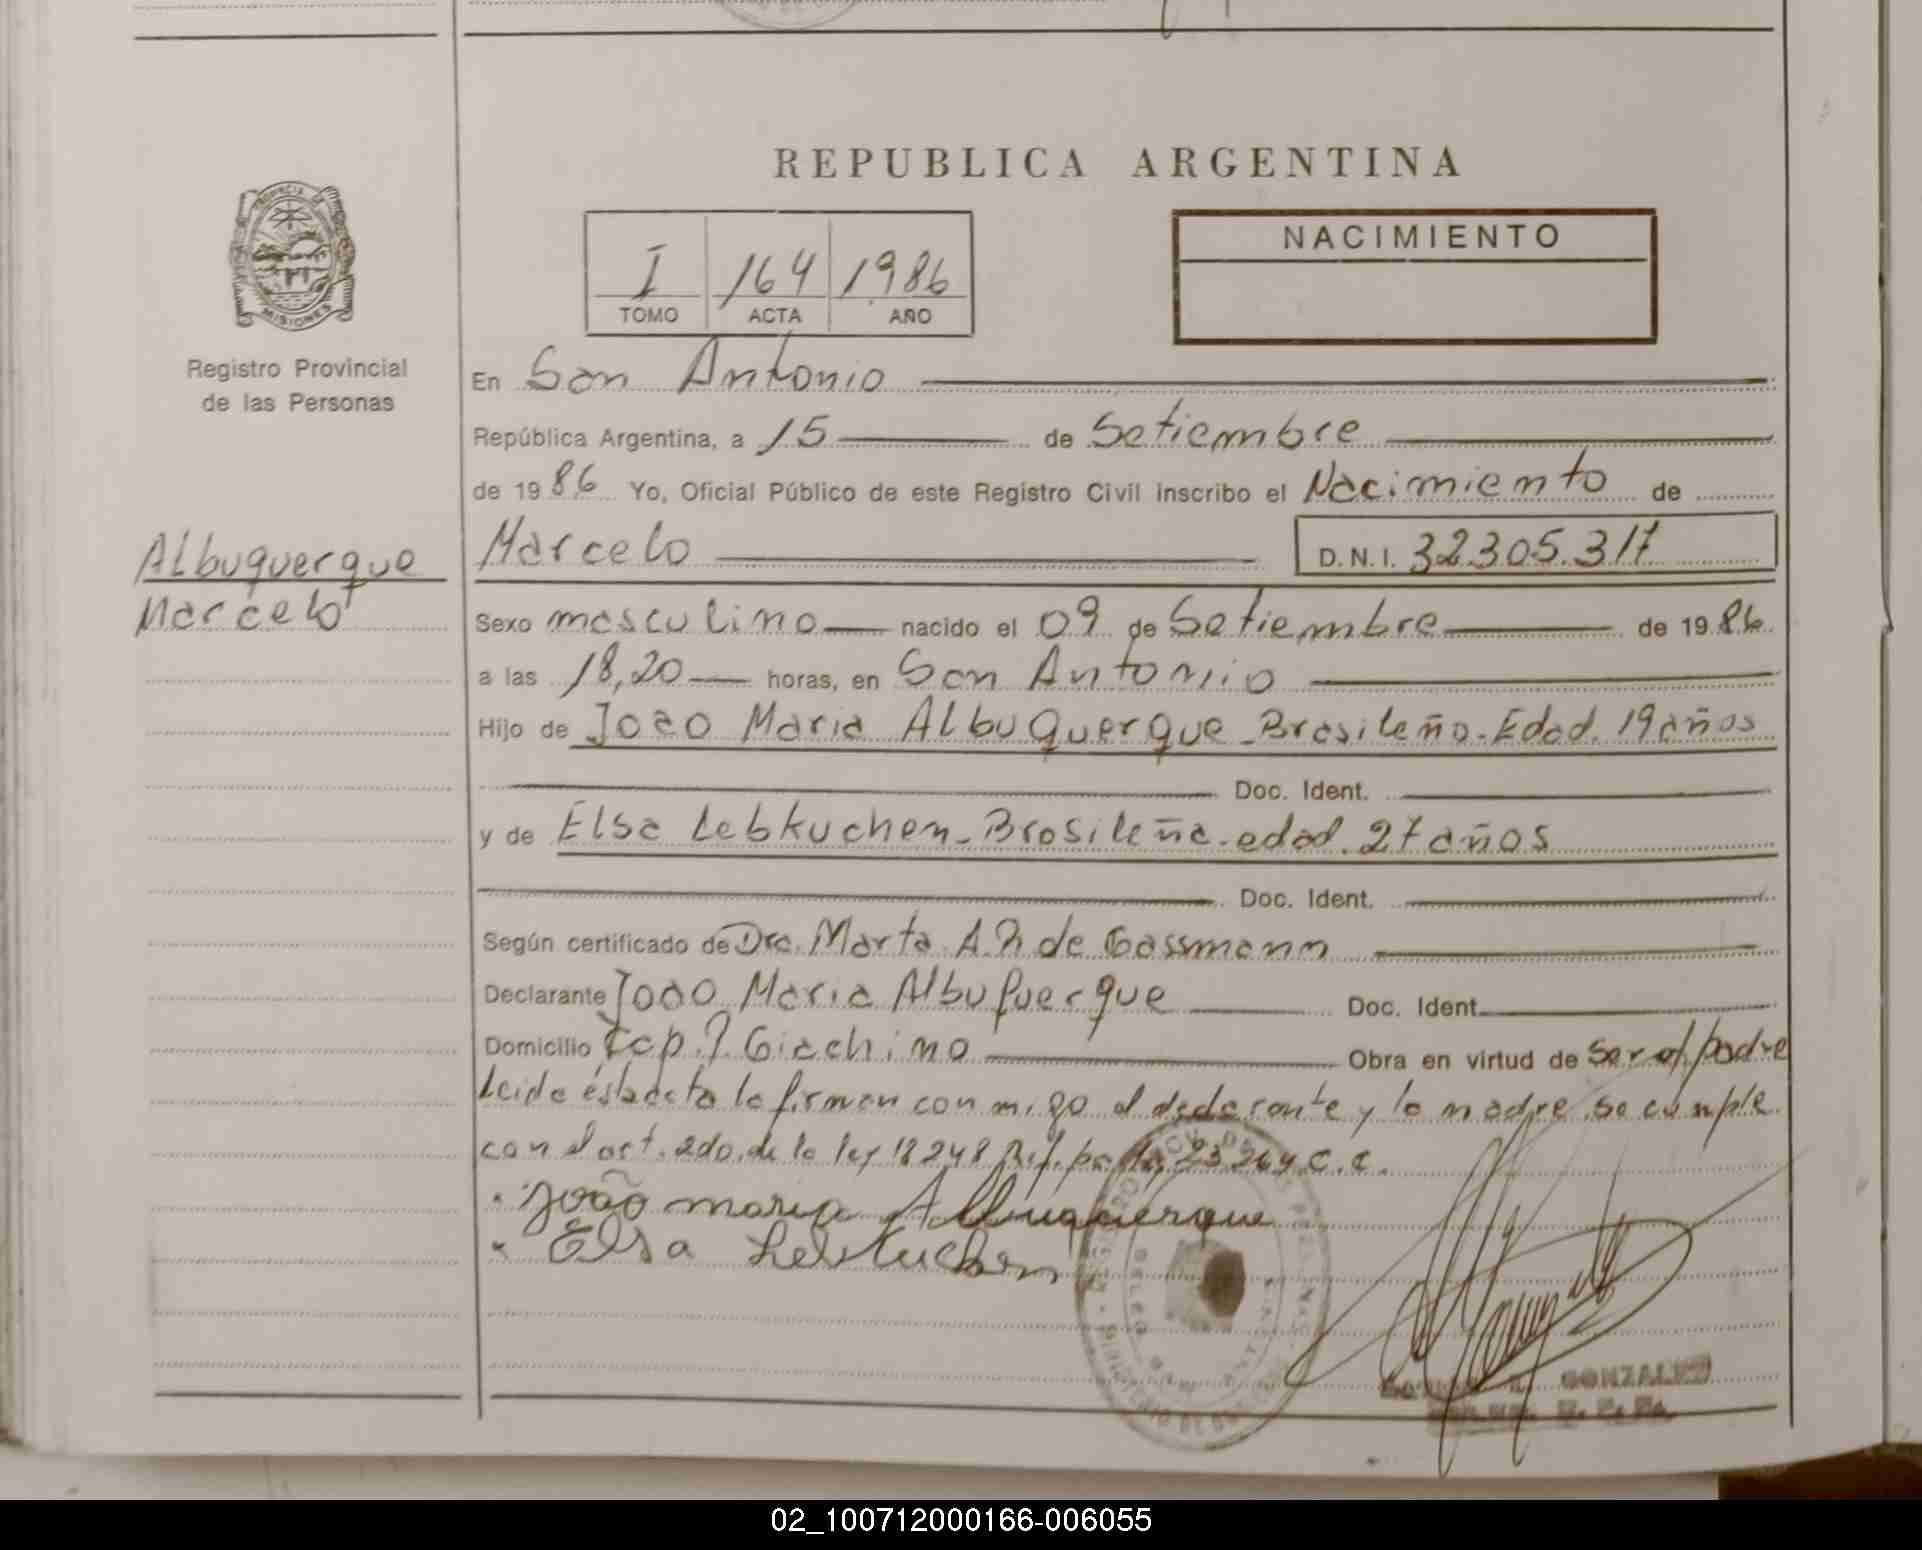 REPUBLICA ARGENTINA
PROVINCIA DE MISIONES
Registro Provincial
de las Personas
I 164 1986
TOMO ACTA AÑO
NACIMIENTO
En San Antonio
República Argentina, a 15 de Setiembre
de 1986 Yo, Oficial Público de este Registro Civil inscribo el Nacimiento de
Albuquerque
Marcelo
Marcelo D.N.I. 32305.317
Sexo masculino nacido el 09 de Setiembre de 1986
a las 18,20 horas, en San Antonio
Hijo de Joao Maria Albuquerque - Brasileño - Edad. 19 años
Doc. Ident.
y de Elsa Lebkuchen - Brasileña - edad. 27 años
Doc. Ident.
Según certificado de Dra. Marta A. de Gassmann
Declarante Joao Maria Albuquerque Doc. Ident.
Domicilio Giachino Obra en virtud de Ser el padre
Leida ésta acta la firman con migo el declarante y la madre se cumple
con el art. 2do. de la ley 18248 23264 C.C.
João maria Albuquerque
Elsa Lebkuchen
GONZALEZ
02_100712000166-006055